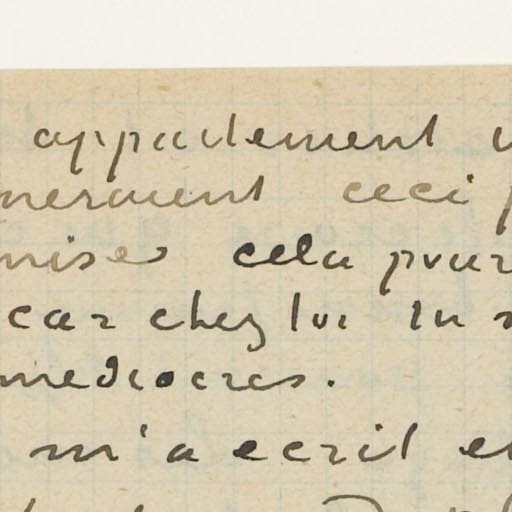 appartement
neraient ceci
mises cela pour
car chez lui tu
mediocres.
m'a ecrit et